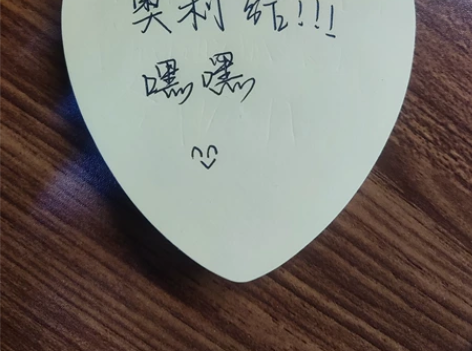 奥利给!!!
嘿嘿